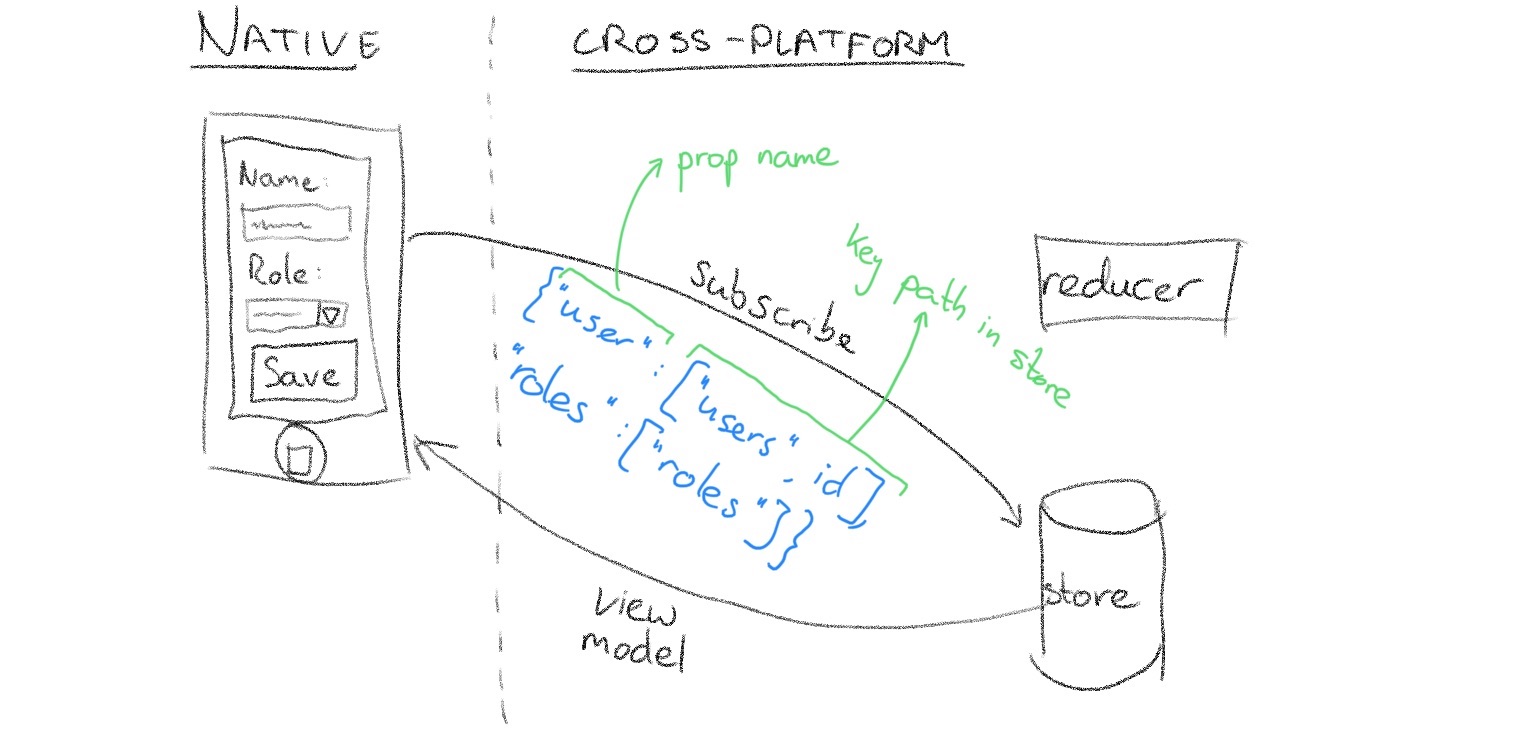 NATIVE
CROSS-PLATFORM
Name:
Role:
Save
prop name
key path in store
Subscribe
{"user": ["users", id]
"roles": ["roles"]}
reducer
store
view
model